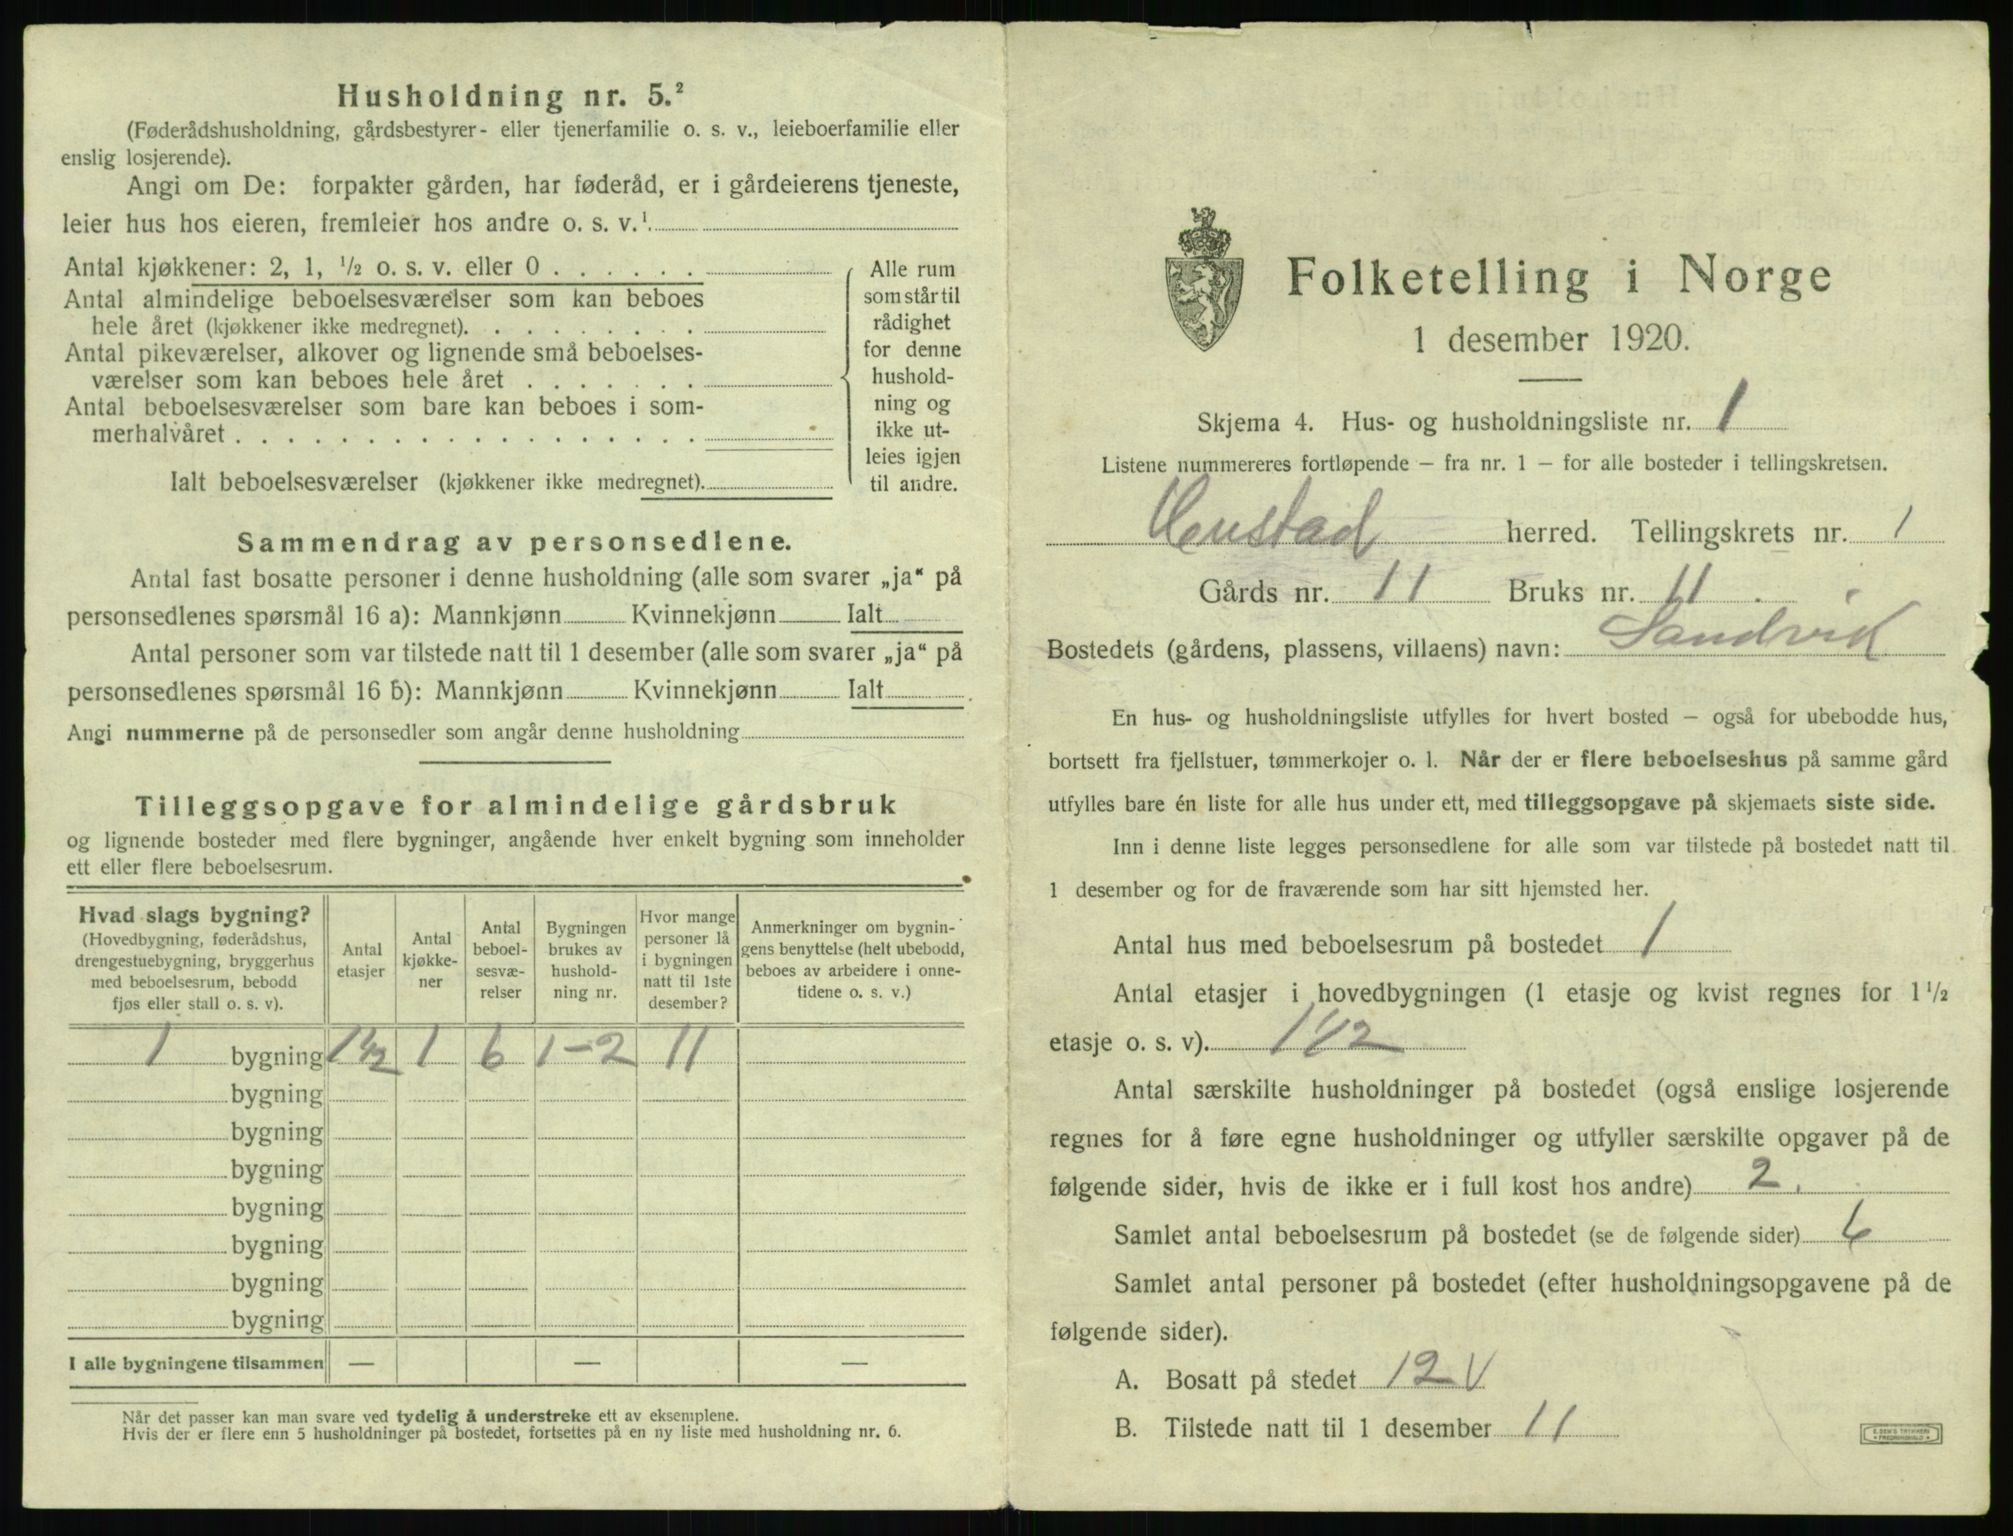 Husholdning nr. 5.²
(Føderådshusholdning, gårdsbestyrer- eller tjenerfamilie o. s. v., leieboerfamilie eller
enslig losjerende).
Angi om De: forpakter gården, har føderåd, er i gårdeierens tjeneste,
leier hus hos eieren, fremleier hos andre o. s. v.¹
Antal kjøkkener: 2, 1, ½ o. s. v. eller 0 . . . . . .
Antal almindelige beboelsesværelser som kan beboes
hele året (kjøkkener ikke medregnet). . . . . . . . .
Antal pikeværelser, alkover og lignende små beboelses-
værelser som kan beboes hele året . . . . . . .
Antal beboelsesværelser som bare kan beboes i som-
merhalvåret . . . . . . . . . . . . . . . . . .
Ialt beboelsesværelser (kjøkkener ikke medregnet).
Alle rum
som står til
rådighet
for denne
hushold-
ning og
ikke ut-
leies igjen
til andre.
Sammendrag av personsedlene.
Antal fast bosatte personer i denne husholdning (alle som svarer „ja“ på
personsedlenes spørsmål 16 a): Mannkjønn Kvinnekjønn Ialt
Antal personer som var tilstede natt til 1 desember (alle som svarer „ja“ på
personsedlenes spørsmål 16 b): Mannkjønn Kvinnekjønn Ialt
Angi nummerne på de personsedler som angår denne husholdning
Tilleggsopgave for almindelige gårdsbruk
og lignende bosteder med flere bygninger, angående hver enkelt bygning som inneholder
ett eller flere beboelsesrum.
Hvad slags bygning?
(Hovedbygning, føderådshus,
drengestuebygning, bryggerhus
med beboelsesrum, bebodd
fjøs eller stall o. s. v).
Antal
etasjer
Antal
kjøkke-
ner
Antal
beboel-
sesvæ-
relser
Bygningen
brukes av
hushold-
ning nr.
Hvor mange
personer lå
i bygningen
natt til 1ste
desember?
Anmerkninger om bygnin-
gens benyttelse (helt ubebodd,
beboes av arbeidere i onne-
tidene o. s. v.)
1 bygning 1½ 1 6 1-2 11
bygning
bygning
bygning
bygning
bygning
bygning
bygning
I alle bygningene tilsammen — — —
Når det passer kan man svare ved tydelig å understreke ett av eksemplene.
Hvis der er flere enn 5 husholdninger på bostedet, fortsettes på en ny liste med husholdning nr. 6.
Folketelling i Norge
1 desember 1920.
Skjema 4. Hus- og husholdningsliste nr. 1
Listene nummereres fortløpende – fra nr. 1 – for alle bosteder i tellingskretsen.
Hustad herred. Tellingskrets nr. 1
Gårds nr. 11 Bruks nr. 11
Bostedets (gårdens, plassens, villaens) navn: Sandvik
En hus- og husholdningsliste utfylles for hvert bosted – også for ubebodde hus,
bortsett fra fjellstuer, tømmerkojer o. l. Når der er flere beboelseshus på samme gård
utfylles bare én liste for alle hus under ett, med tilleggsopgave på skjemaets siste side.
Inn i denne liste legges personsedlene for alle som var tilstede på bostedet natt til
1 desember og for de fraværende som har sitt hjemsted her.
Antal hus med beboelsesrum på bostedet 1
Antal etasjer i hovedbygningen (1 etasje og kvist regnes for 1½
etasje o. s. v). 1 1/2
Antal særskilte husholdninger på bostedet (også enslige losjerende
regnes for å føre egne husholdninger og utfyller særskilte opgaver på de
følgende sider, hvis de ikke er i full kost hos andre) 2.
Samlet antal beboelsesrum på bostedet (se de følgende sider) 6
Samlet antal personer på bostedet (efter husholdningsopgavene på de
følgende sider).
A. Bosatt på stedet 12 V
B. Tilstede natt til 1 desember 11